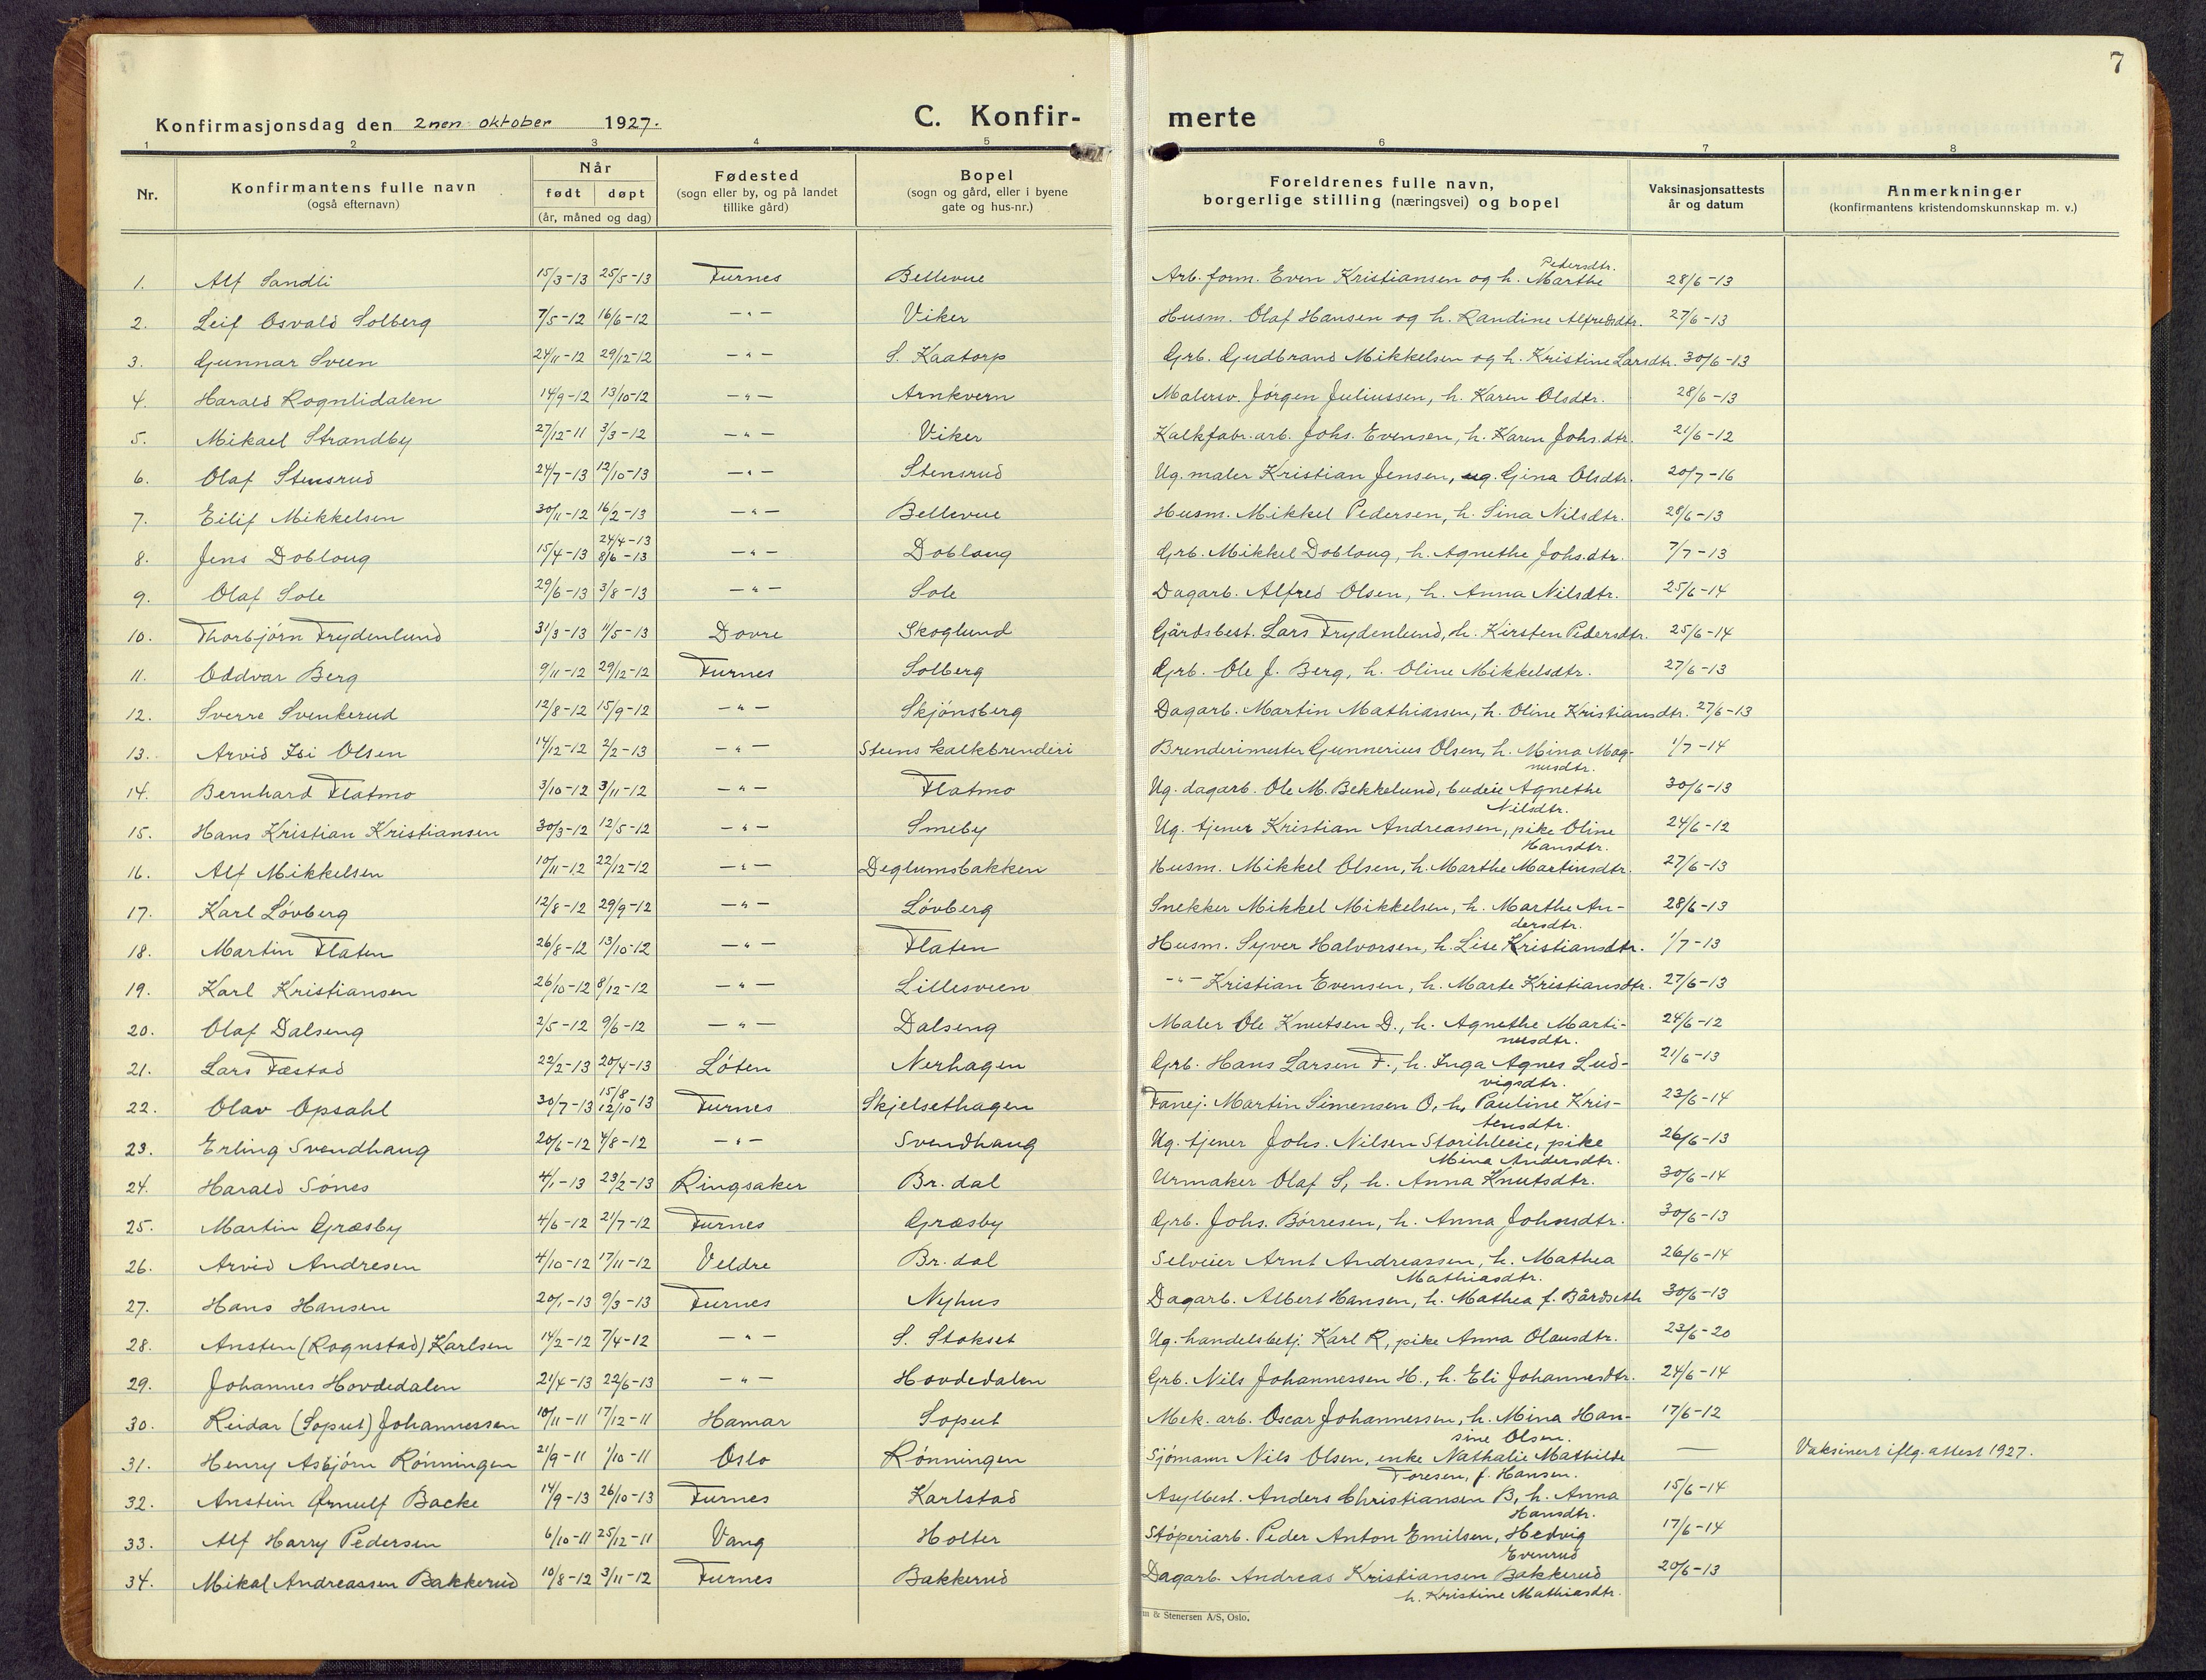 7
Konfirmasjonsdag den 2nen oktober 1927.
C. Konfir-
merte
1 2 3 4 5 6 7 8
Nr.
Konfirmantens fulle navn
(også efternavn)
Når
født døpt
(år, måned og dag)
Fødested
(sogn eller by, og på landet
tillike gård)
Bopel
(sogn og gård, eller i byene
gate og hus-nr.)
Foreldrenes fulle navn,
borgerlige stilling (næringsvei) og bopel
Vaksinasjonsattests
år og datum
Anmerkninger
(konfirmantens kristendomskunnskap m. v.)
Pedersdtr.
1. Alf Sandli 15/3-13 25/5-13 Furnes Bellevue Arb. form. Even Kristiansen og h. Marthe 28/6-13
2. Leif Osvald Solberg 7/5-12 16/6-12 -"- Viker Husm. Olaf Hansen og h. Randine Alfredsdtr. 27/6-13
3. Gunnar Sveen 24/11-12 29/12-12 -"- S. Kaatorp Grb. Gudbrand Mikkelsen og h. Kristine Larsdtr. 30/6-13
4. Harald Rognlidalen 14/9-12 13/10-12 -"- Arnkvern Malersv. Jörgen Juliussen, h. Karen Olsdtr. 28/6-13
5. Mikael Strandby 27/12-11 3/3-12 -"- Viker Kalkfabr. arb. Johs. Evensen, h. Karen Johs.dtr. 21/6-12
6. Olaf Stensrud 24/7-13 12/10-13 -"- Stensrud Ug. maler Kristian Jensen, ug. Gina Olsdtr. 20/7-16
7. Eilif Mikkelsen 30/11-12 16/2-13 -"- Bellevue Husm. Mikkel Pedersen, h. Sina Nilsdtr. 28/6-13
24/4-13
8. Jens Dobloug 15/4-13 8/6-13 -"- Dobloug Grb. Mikkel Dobloug, h. Agnethe Johs.dtr. 7/7-13
9. Olaf Sole 29/6-13 3/8-13 -"- Sole Dagarb. Alfred Olsen, h. Anna Nilsdtr. 25/6-14
10. Thorbjörn Frydenlund 31/3-13 11/5-13 Dovre Skoglund Gårdsbest. Lars Frydenlund, h. Kirsten Pedersdtr. 25/6-14
11. Oddvar Berg 9/11-12 29/12-12 Furnes Solberg Grb. Ole J. Berg, h. Oline Mikkelsdtr. 27/6-13
12. Sverre Svenkerud 12/8-12 15/9-12 -"- Skjönsberg Dagarb. Martin Mathiassen, h. Oline Kristiansdtr. 27/6-13
13. Arvid Isi Olsen 14/12-12 2/2-13 -"- Steens kalkbrenderi Brenderimester Gunnerius Olsen, h. Mina Mag- 1/7-14
nusdtr.
14. Bernhard Flatmo 3/10-12 3/11-12 -"- Flatmo Ug. dagarb. Ole M. Bekkelund, budeie Agnethe 30/6-13
Nilsdtr.
15. Hans Kristian Kristiansen 30/3-12 12/5-12 -"- Smeby Ug. tjener Kristian Andreassen, pike Oline 24/6-12
Hansdtr.
16. Alf Mikkelsen 10/11-12 22/12-12 -"- Deglumsbakken Husm. Mikkel Olsen, h. Marthe Martinsdtr. 27/6-13
17. Karl Lövberg 12/8-12 29/9-12 -"- Lövberg Snekker Mikkel Mikkelsen, h. Marthe An- 28/6-13
dersdtr.
18. Martin Flaten 26/8-12 13/10-12 -"- Flaten Husm. Syver Halvorsen, h. Lise Kristiansdtr. 1/7-13
19. Karl Kristiansen 26/10-12 8/12-12 -"- Lillesveen -"- Kristian Evensen, h. Marte Kristiansdtr. 27/6-13
20. Olaf Dalseng 2/5-12 9/6-12 -"- Dalseng Maler Ole Knutsen D., h. Agnethe Marti- 24/6-12
nusdtr.
21. Lars Fæstad 22/2-13 20/4-13 Löten Nerhagen Grb. Hans Larsen F., h. Inga Agnes Lud- 21/6-13
vigsdtr.
15/8
22. Olav Opsahl 30/7-13 12/10-13 Furnes Skjelsethagen Fanej. Martin Simensen O, h. Pauline Kris- 23/6-14
tensdtr.
23. Erling Svendhaug 20/6-12 4/8-12 -"- Svendhaug Ug. tjener Johs. Nilsen Storihleie, pike 26/6-13
Mina Andersdtr.
24. Harald Sönes 4/1-13 23/2-13 Ringsaker Br. dal Urmaker Olaf S, h. Anna Knutsdtr. 30/6-14
25. Martin Græsby 4/6-12 21/7-12 Furnes Græsby Grb. Johs. Börresen, h. Anna Johnsdtr. 30/6-13
26. Arvid Andresen 4/10-12 17/11-12 Veldre Br. dal Selveier Arnt Andreassen, h. Mathea 26/6-14
Mathiasdtr.
27. Hans Hansen 20/1-13 9/3-13 Furnes Nyhus Dagarb. Albert Hansen, h. Mathea f. Bårdseth 30/6-13
28. Ansten (Rognstad) Karlsen 14/2-12 7/4-12 -"- S. Stokset Ug. handelsbetj. Karl R, pike Anna Olausdtr. 23/6-20
29. Johannes Hovdedalen 21/4-13 22/6-13 -"- Hovdedalen Grb. Nils Johannessen H., h. Eli Johannesdtr. 24/6-14
30. Reidar (Soput) Johannessen 10/11-11 17/12-11 Hamar Soput Mek. arb. Oscar Johannessen, h. Mina Han- 17/6-12
sine Olsen.
31. Henry Asbjörn Rönningen 21/9-11 1/10-11 Oslo Rönningen Sjömann Nils Olsen, enke Nathalie Mathilde — Vaksinert iflg. attest 1927.
Toresen, f. Hansen.
32. Anstein Ørnulf Backe 14/9-13 26/10-13 Furnes Karlstad Asylbest. Anders Christiansen B, h. Anna 15/6-14
Hansdtr.
33. Alf Harry Pedersen 6/10-11 25/12-11 Vang Holter Stöperiarb. Peder Anton Emilsen, Hedvig 17/6-14
Evenrud
34. Mikal Andreassen Bakkerud 10/8-12 3/11-12 Furnes Bakkerud Dagarb. Andreas Kristiansen Bakkerud 20/6-13
h. Kristine Mathiasdtr.
& Stenersen A/S, Oslo.